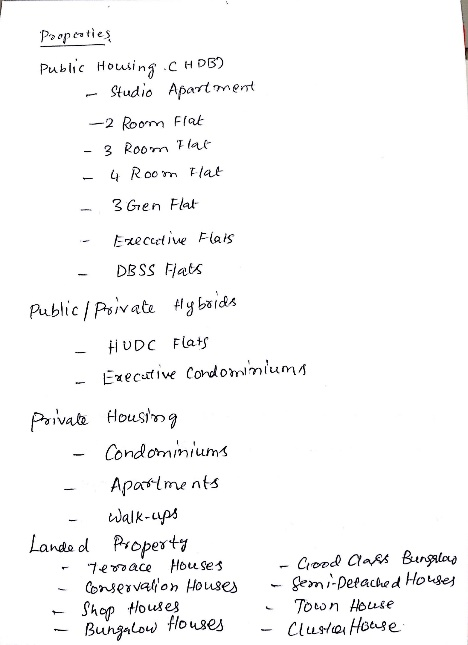 Properties
Public Housing (HDB)
- Studio Apartment
- 2 Room Flat
- 3 Room Flat
- 4 Room Flat
- 3 Gen Flat
- Executive Flats
- DBSS Flats
Public/Private Hybrids
- HUDC Flats
- Executive Condominiums
Private Housing
- Condominiums
- Apartments
- Walk-ups
Landed Property
- Terrace Houses
- Conservation Houses
- Shop Houses
- Bungalow Houses
- Good Class Bungalow
- Semi-Detached Houses
- Town House
- Cluster House